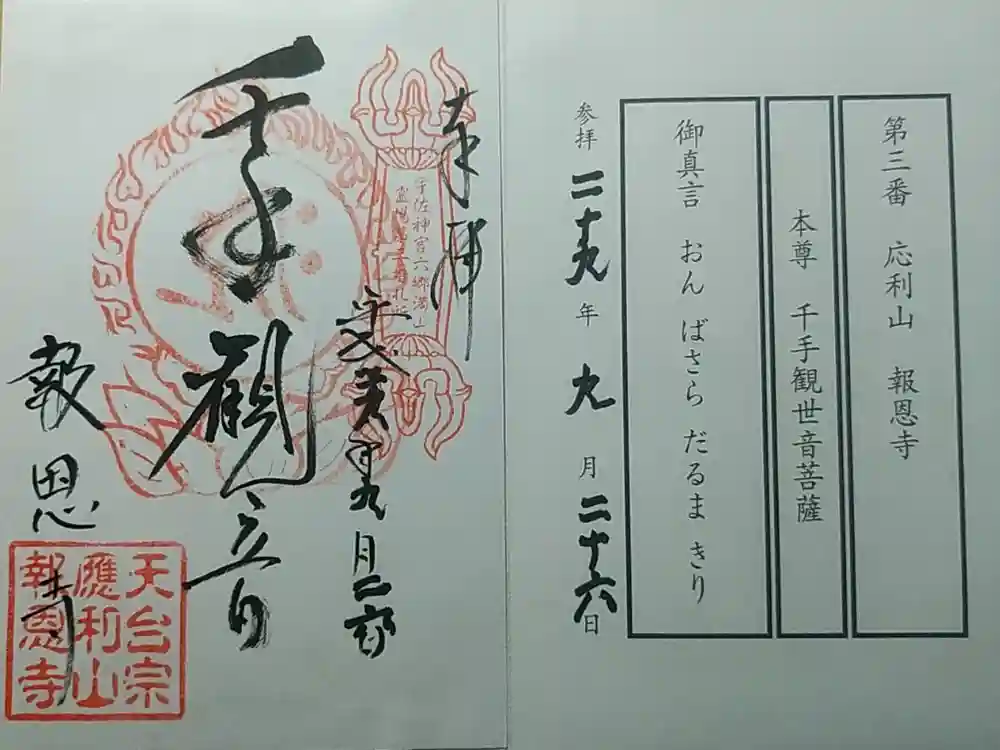 第三番 応利山 報恩寺
本尊 千手観世音菩薩
御真言 おん ばさら だるま きり
参拝 二十九年 九月 二十六日
奉拝
宇佐神宮六郷満山
千手観音
報恩寺
天台宗
應利山
報恩寺